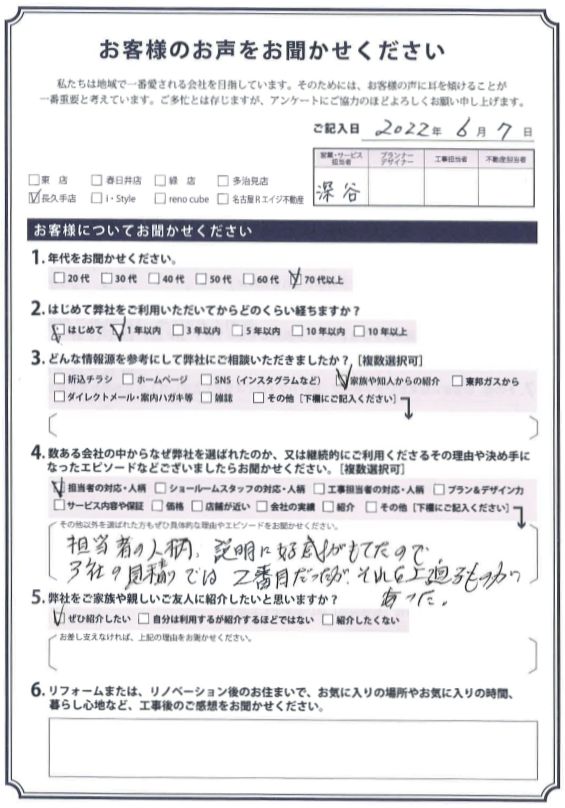 お客様のお声をお聞かせください
私たちは地域で一番愛される会社を目指しています。そのためには、お客様の声に耳を傾けることが
一番重要と考えています。ご多忙とは存じますが、アンケートにご協力のほどよろしくお願い申し上げます。
ご記入日 2022年 6月 7日
営業・サービス担当者 プランナーデザイナー 工事担当者 不動産担当者
深谷
□東 店 □春日井店 □緑 店 □多治見店
☑長久手店 □i・Style □reno cube □名古屋Rエイジ不動産
お客様についてお聞かせください
1. 年代をお聞かせください。
□20代 □30代 □40代 □50代 □60代 ☑70代以上
2. はじめて弊社をご利用いただいてからどのくらい経ちますか？
☑はじめて ☑1年以内 □3年以内 □5年以内 □10年以内 □10年以上
3. どんな情報源を参考にして弊社にご相談いただきましたか？［複数選択可］
□折込チラシ □ホームページ □SNS（インスタグラムなど） ☑家族や知人からの紹介 □東邦ガスから
□ダイレクトメール・案内ハガキ等 □雑誌 □その他［下欄にご記入ください］
4. 数ある会社の中からなぜ弊社を選ばれたのか、又は継続的にご利用くださるその理由や決め手に
なったエピソードなどございましたらお聞かせください。［複数選択可］
☑担当者の対応・人柄 □ショールームスタッフの対応・人柄 □工事担当者の対応・人柄 □プラン＆デザイン力
□サービス内容や保証 □価格 □店舗が近い □会社の実績 □紹介 □その他［下欄にご記入ください］
その他以外を選ばれた方もぜひ具体的な理由やエピソードをお聞かせください。
担当者の人柄、説明に好感がもてたので
3社の見積りでは 2番目だったが、それを上廻るものが
あった。
5. 弊社をご家族や親しいご友人に紹介したいと思いますか？
☑ぜひ紹介したい □自分は利用するが紹介するほどではない □紹介したくない
お差し支えなければ、上記の理由をお聞かせください。
6. リフォームまたは、リノベーション後のお住まいで、お気に入りの場所やお気に入りの時間、
暮らし心地など、工事後のご感想をお聞かせください。